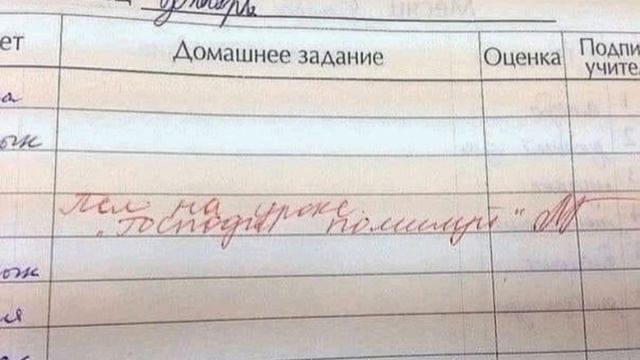 январь
ет Домашнее задание Оценка Подпи
учител
а
ж
Пел на уроке
"Господи помилуй"
ж
я